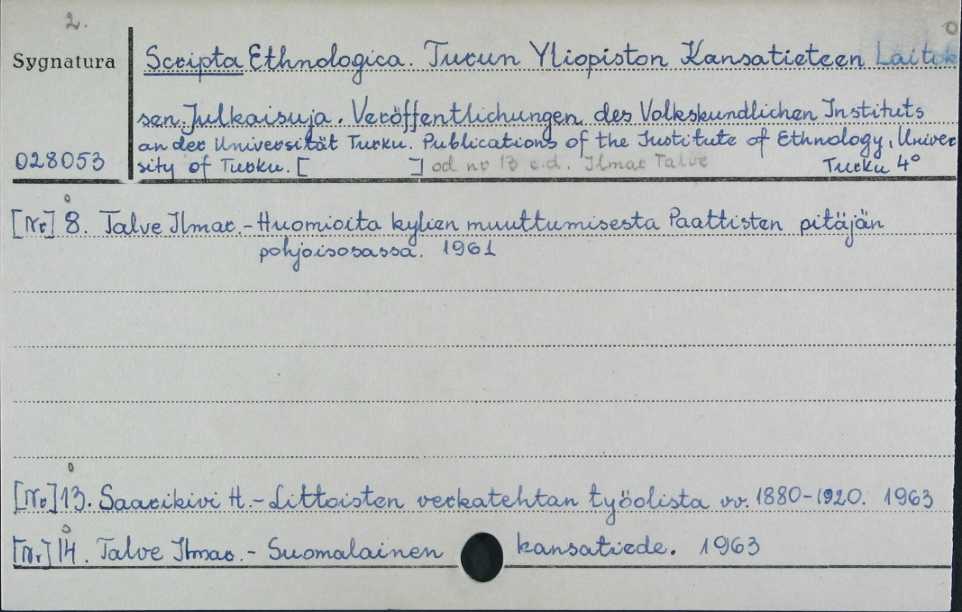 2.
Sygnatura
Scripta Ethnologica. Turun Yliopiston Kansatieteen Laitok
sen Julkaisuja. Veröffentlichungen des Volkskundlichen Instituts
an der Universität Turku. Publications of the Institute of Ethnology, Univer
028053
sity of Turku. [ ] od nr 13 e.d. Ilmar Talve Turku 4°
[Nr] 8. Talve Ilmar. - Huomioita kylien muuttumisesta Paattisten pitäjän
pohjoisosassa. 1961
[Nr] 13. Saarikivi H. - Littoisten verkatehtan työolista vv. 1880-1920. 1963
[Nr] 14. Talve Ilmar. - Suomalainen kansatiede. 1963